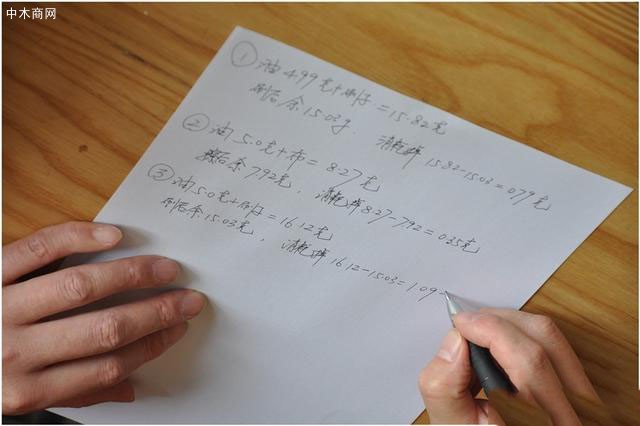 中木商网
① 油4.99克+刷子=15.82克
刷后余15.03g. 消耗 15.82-15.03=0.79克
② 油5.0克+布=8.27克
擦后余7.92克, 消耗 8.27-7.92=0.35克
③ 油5.0克+刷子=16.12克
刷后余15.03克, 消耗 16.12-15.03=1.09